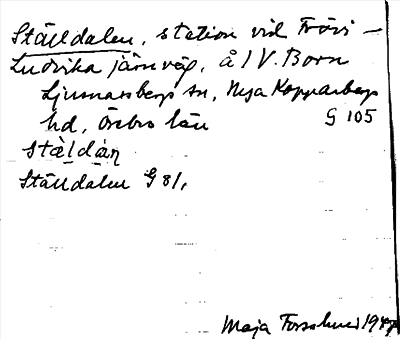 Ställdalen, station vid Frövi –
Ludvika järnväg, å 1 V. Born
Ljusnarsbergs sn, Nya Kopparbergs
hd, Örebro län G 105
stàldán
Ställdalen G 81,
Maja 194